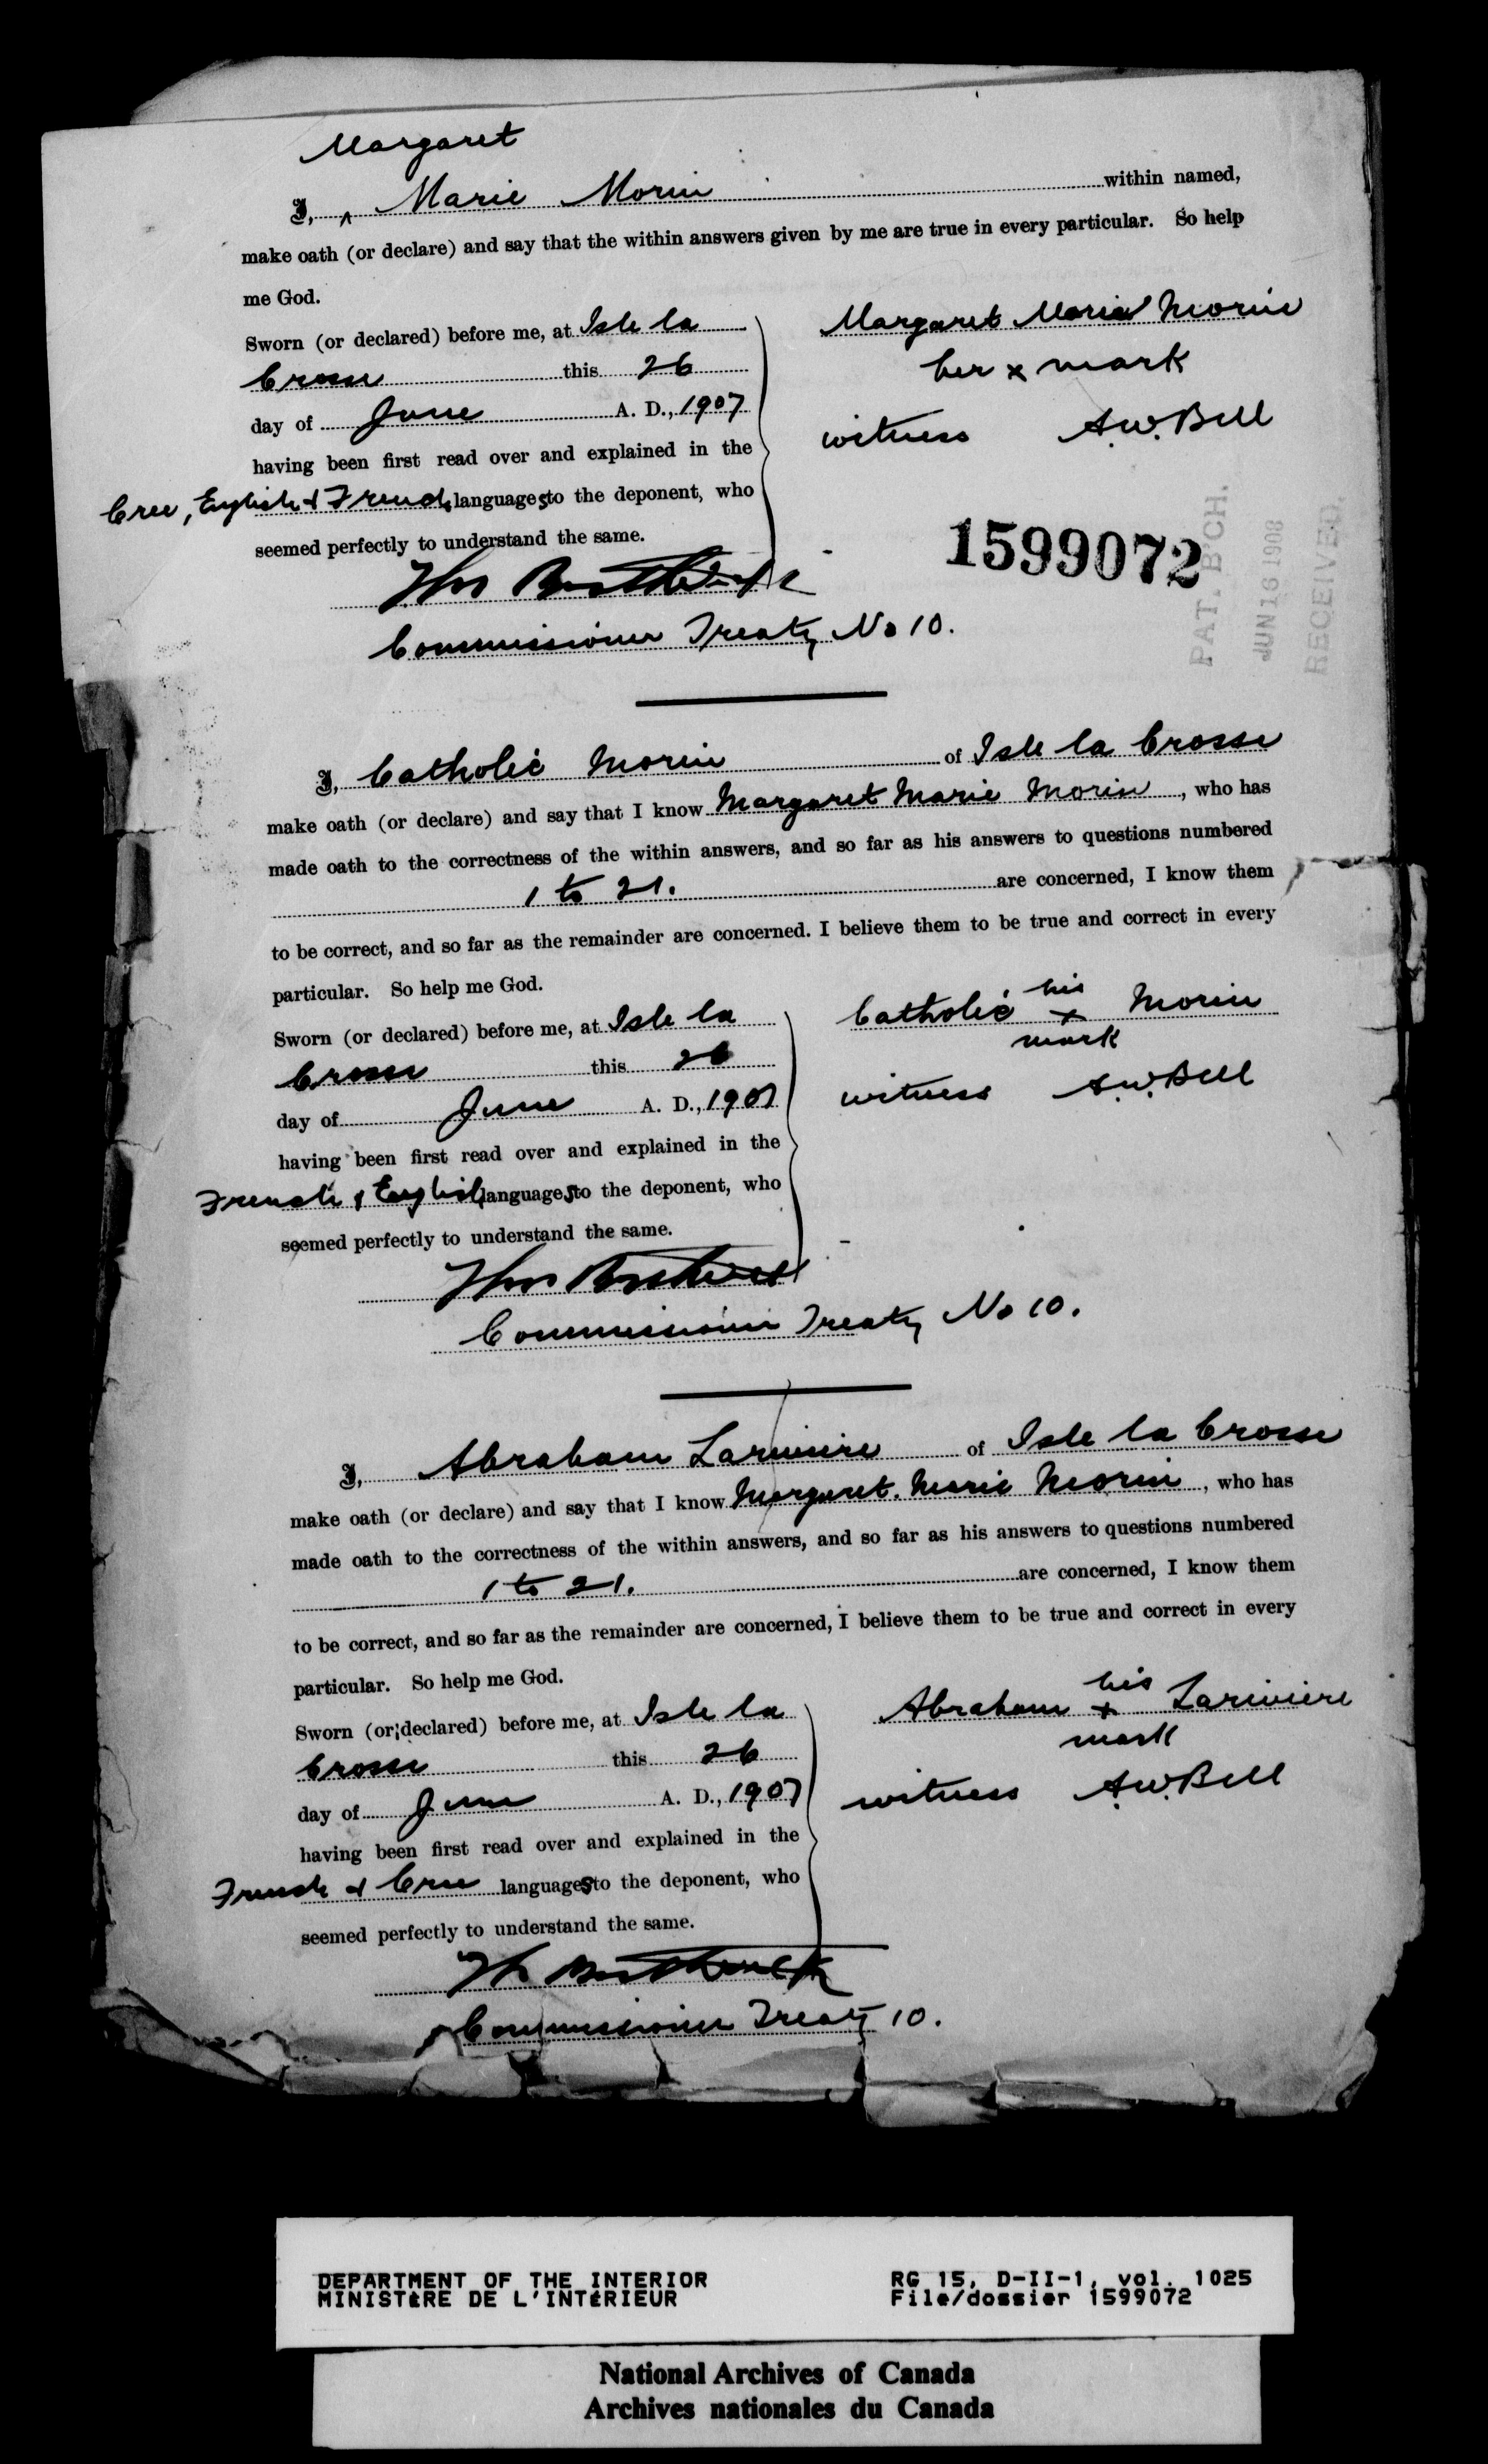 Margaret
I, ^ Marie Morin within named,
make oath (or declare) and say that the within answers given by me are true in every particular. So help
me God.
Sworn (or declared) before me, at Isle la
Crosse this 26
day of June A. D., 1907
having been first read over and explained in the
Cree, English & French languages to the deponent, who
seemed perfectly to understand the same.
Margaret Marie Morin
her x mark
witness A.W. Bell
1599072
PAT. B'CH.
JUN 16 1908
RECEIVED
Thos Borthwick
Commissioner Treaty No 10.
I, Catholic Morin of Isle la Crosse
make oath (or declare) and say that I know Margaret Marie Morin, who has
made oath to the correctness of the within answers, and so far as his answers to questions numbered
1 to 21. are concerned, I know them
to be correct, and so far as the remainder are concerned. I believe them to be true and correct in every
particular. So help me God.
Sworn (or declared) before me, at Isle la
Crosse this 26
day of June A. D., 1907
having been first read over and explained in the
French & English languages to the deponent, who
seemed perfectly to understand the same.
his
Catholic x Morin
mark
witness A.W. Bell
Thos Borthwick
Commissioner Treaty No 10.
I, Abraham Lariviere of Isle la Crosse
make oath (or declare) and say that I know Margaret Marie Morin, who has
made oath to the correctness of the within answers, and so far as his answers to questions numbered
1 to 21. are concerned, I know them
to be correct, and so far as the remainder are concerned, I believe them to be true and correct in every
particular. So help me God.
Sworn (or declared) before me, at Isle la
Crosse this 26
day of June A. D., 1907
having been first read over and explained in the
French & Cree languages to the deponent, who
seemed perfectly to understand the same.
his
Abraham x Lariviere
mark
witness A.W. Bell
Thos Borthwick
Commissioner Treaty 10.
DEPARTMENT OF THE INTERIOR
MINISTÈRE DE L'INTÉRIEUR
RG 15, D-II-1, vol. 1025
File/dossier 1599072
National Archives of Canada
Archives nationales du Canada